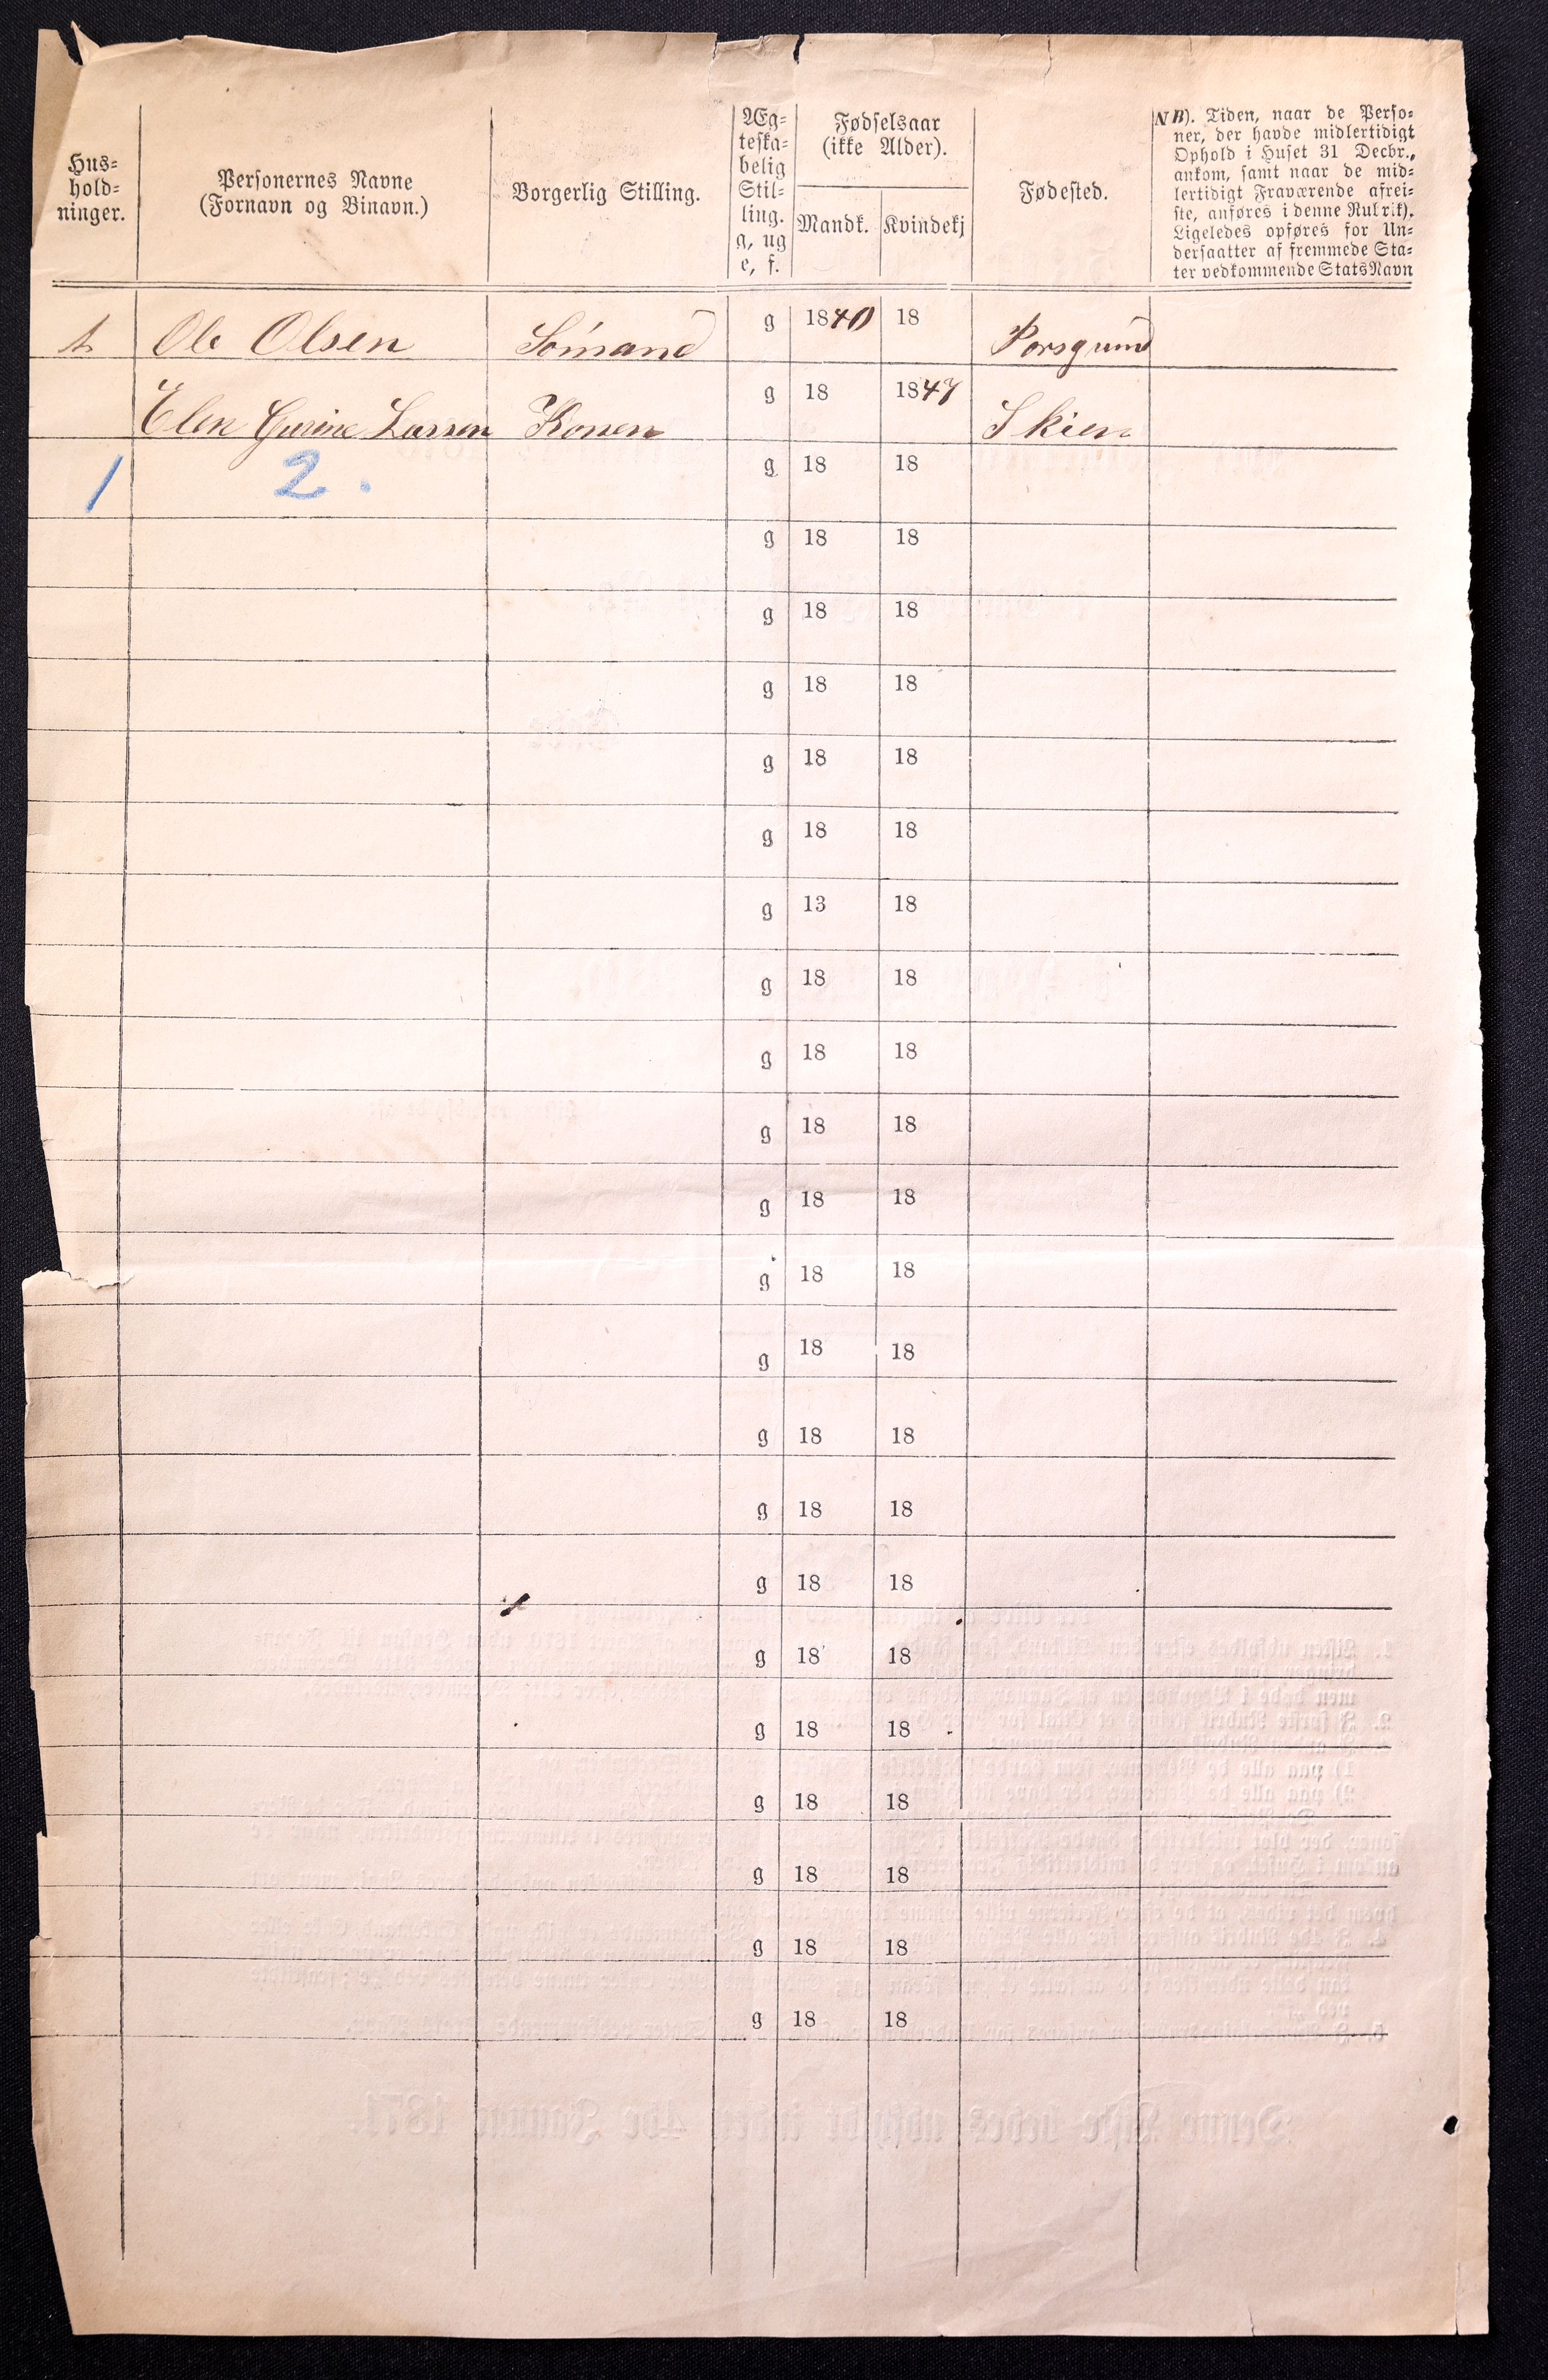 Hus-
hold-
ninger.
Personernes Navne
(Fornavn og Binavn.)
Borgerlig Stilling.
Æg-
teska-
belig
Stil-
ling.
g, ug
e, f.
Fødselsaar
(ikke Alder).
Mandk.
Kvindekj
Fødested.
NB). Tiden, naar de Perso-
ner, der havde midlertidigt
Ophold i Huset 31 Decbr.,
ankom, samt naar de mid-
lertidigt Fraværende afrei-
ste, anføres i denne Rubrik).
Ligeledes opføres for Un-
dersaatter af fremmede Sta-
ter vedkommende Stats Navn
1 Ole Olsen Sömand g 1840 18 Porsgrund
Elen Gurine Larsen Konen g 18 1847 Skien
1 2. g 18 18
g 18 18
g 18 18
g 18 18
g 18 18
g 18 18
g 13 18
g 18 18
g 18 18
g 18 18
g 18 18
g 18 18
g 18 18
g 18 18
g 18 18
g 18 18
g 18 18
g 18 18
g 18 18
g 18 18
g 18 18
g 18 18